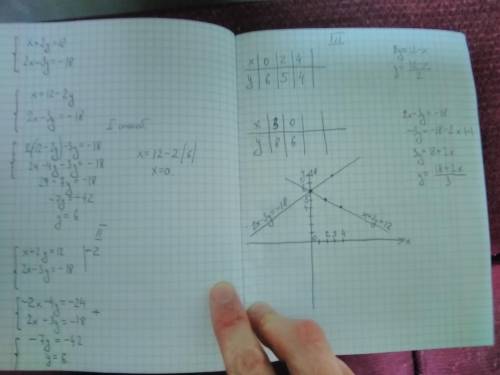 x+2y=12
2x-3y=-18
x=12-2y
2x-3y=-18
I способ
2(12-2y)-3y=-18
24-4y-3y=-18
24-7y=-18
-7y=-42
y=6
x=12-2(6)
x=0
II
x+2y=12 |-2
2x-3y=-18
-2x-4y=-24
+
2x-3y=-18
-7y=-42
y=6
III
x 0 2 4
y 6 5 4
x 3 0
y 8 6
2y=12-x
y=12-x/2
2x-3y=-18
3y=18+2x
y=18+2x/3
2x-3y=-18
x+2y=12
y
x
0 2 3 4